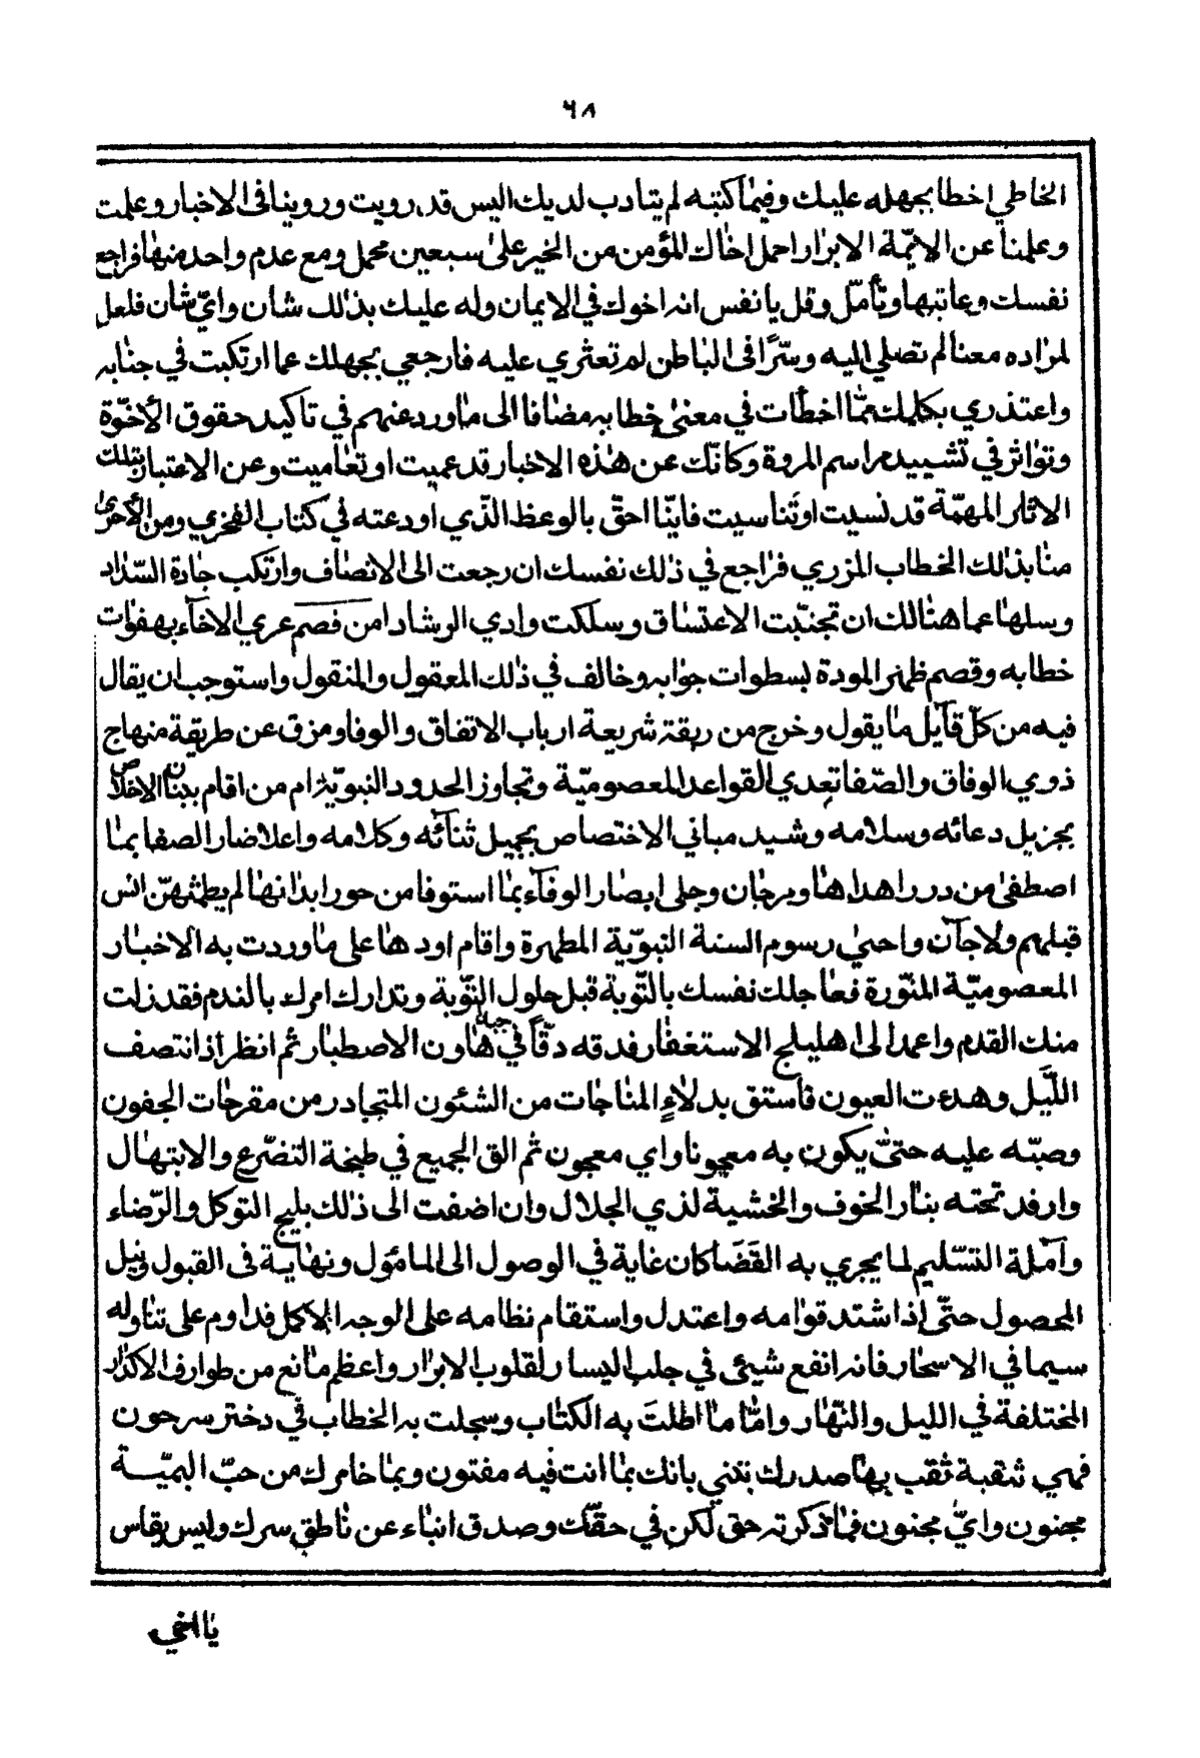 ٦٨
الخاطي اخطا بجهله عليك وفيما كتبه لم يتادب لديك اليس قد رويت وروينا فى الاخبار وعلمت
وعلمنا عن الائمّة الابرار احمل اخاك المؤمن من الخير على سبعين محمل ومع عدم واحد منها فراجع
نفسك وعاتبها وتأمّل وقل يا نفس انه اخوك في الايمان وله عليك بذلك شان وايّ شان فلعل
لمراده معنا لم تصلي اليه وسّرًا فى الباطن لم تعثري عليه فارجعي بجهلك عما ارتكبت في جنابه
واعتذري بكلمك ممّا اخطأت في معنى خطابه مضافا الى ما ورد عنهم في تاكيد حقوق الأخوّة
وتواتر في تشييد مراسم المروة وكانّك عن هذه الاخبار قد عميت او تعاميت وعن الاعتبار بتلك
الاثار المهمّة قد نسيت او تناسيت فايّنا احقّ بالوعظ الذّي اودعته في كتاب الفخري ومن الأحرى
منا بذلك الخطاب المزري فراجع في ذلك نفسك ان رجعت الى الانصاف وارتكب جادة السّداد
وسلها عما هنالك ان تجنّبت الاعتساق وسلكت وادي الرشاد امن فصم عري الاخآء بهفوات
خطابه وقصم ظهر المودة بسطوات جوابه وخالف في ذلك المعقول والمنقول واستوجب ان يقال
فيه من كلّ قآيل ما يقول وخرج من ربقة شريعة ارباب الاتفاق والوفا ومزق عن طريقة منهاج
ذوي الوفاق والصّفا بتعدي القواعد المعصوميّة وتجاوز الحدود النبويّة ام من اقام بنيان الاخلاص
بجزيل دعائه وسلامه وشيد مباني الاختصاص بجميل ثنآئه وكلامه واعلا منار الصفا بما
اصطفى من درر اهداها ومرجان وجلى ابصار الوفآء بما استوفا من حور ابدانها لم يطمثهنّ انس
قبلهم ولا جآن واحيى رسوم السنة النبوّية المطهرة واقام اودها على ما وردت به الاخبار
المعصوميّة المنوّرة فعاجلك نفسك بالتّوبة قبل حلول النّوبة وتدارك امرك بالندم فقد زلت
منك القدم واعمد الى اهليلج الاستغفار فدقه دقّاً جيدا في هاون الاصطبار ثم انظر اذا انتصف
اللّيل وهدءت العيون فاستق بدلاءِ المناجات من الشئون المتجادر من مقرحات الجفون
وصبّه عليه حتىّ يكون به معجونا واي معجون ثم الق الجميع في طبخة التضرّع والابتهال
وارفد تحته بنار الخوف والخشية لذي الجلال وان اضفت الى ذلك بليج التوكل والرّضاء
وآملة التسّليم لما يجري به القَضَا كان غاية في الوصول الى المامؤل ونهاية فى القبول ونيل
المحصول حتّى إذا اشتد قوامه واعتدل واستقام نظامه على الوجه الاكمل فداوم على تناوله
سيما في الاسحار فانه انفع شيئ في جلب اليسار لقلوب الابرار واعظم مانع من طوارف الاكدار
المختلفة في الليل والنّهار وامّا ما اطلتَ به الكتاب وسجلت به الخطاب في دختر سرحون
فهي شقبة ثقب بها صدرك بتني بانك بما انت فيه مفتون وبما خامرك من حبّ البميّــة
مجنون وايّ مجنون فما ذكرته حق لكن في حقّك وصدق انباء عن ناطق سرك وليس يقاس
يا اخي